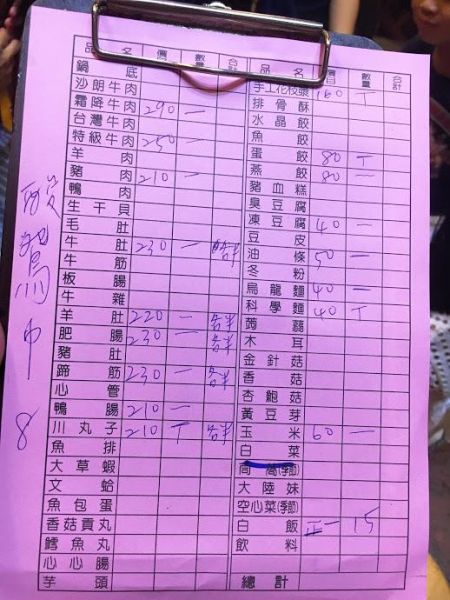 品名 價 數量 合計
鍋底
沙朗牛肉
霜降牛肉 290 一
台灣牛肉
特級牛肉 250 一
羊肉
豬肉 210 一
鴨肉
生干貝
毛肚
牛肚 230 一
牛筋
板腸
牛雜
羊肚 220 一
肥腸 230 一
豬肚
蹄筋 230 一
心管
鴨腸 210 一
川丸子 210 T
魚排
大草蝦
文蛤
魚包蛋
香菇貢丸
鱈魚丸
心心腸
芋頭
品名 價 數量 合計
手工花枝漿 160 T
排骨酥
水晶餃
魚餃
蛋餃 80 T
燕餃 80 一
豬血糕
臭豆腐
凍豆腐 40 一
豆皮
油條 50 一
冬粉
烏龍麵 40 一
科學麵 40 T
蒟蒻
木耳
金針菇
香菇
杏鮑菇
黃豆芽
玉米 60 一
白菜
茼蒿(季節)
大陸妹
空心菜(季節)
白飯 正一 15
飲料
總計
8